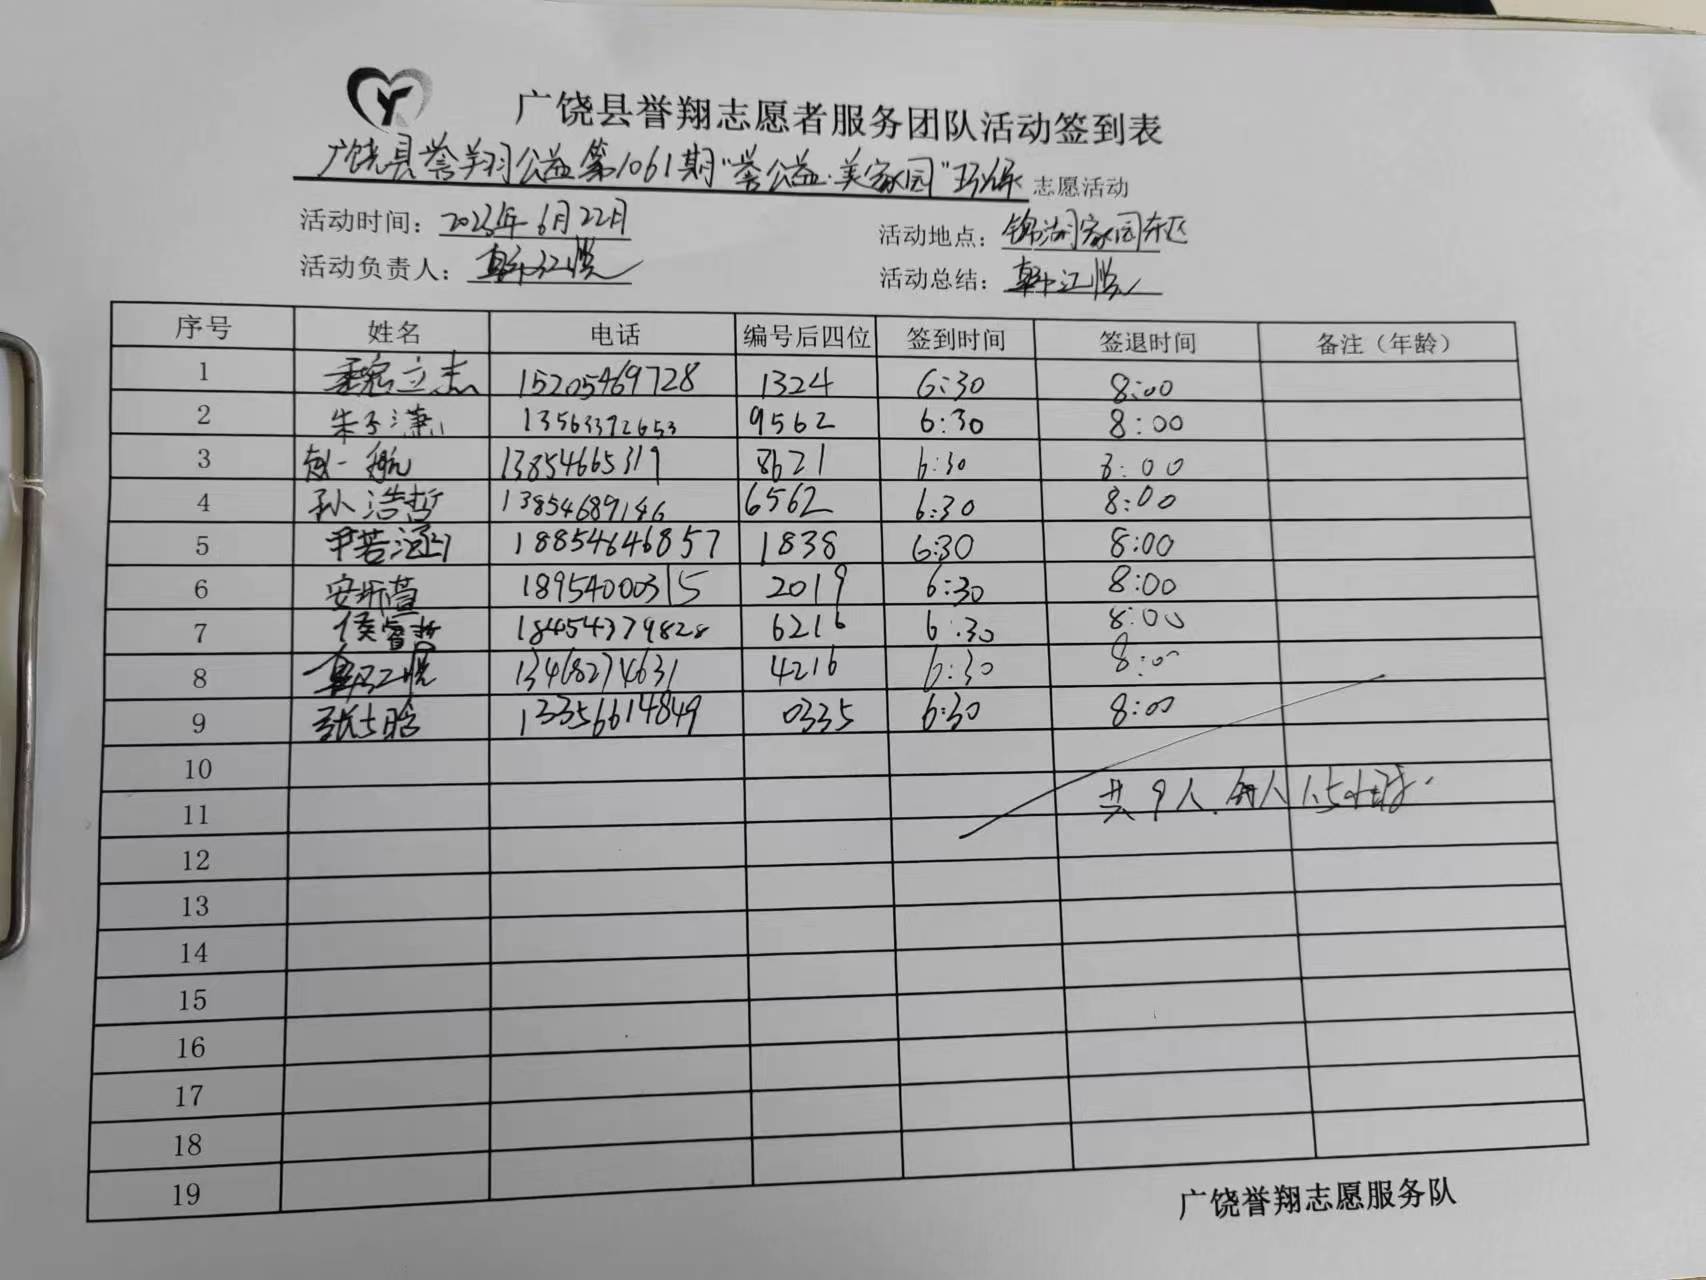 广饶县誉翔志愿者服务团队活动签到表
广饶县誉翔公益第1061期"誉公益·美家园"环保 志愿活动
活动时间：2023年6月22日 活动地点：锦湖家园东区
活动负责人：韩江悦 活动总结：韩江悦
序号 姓名 电话 编号后四位 签到时间 签退时间 备注（年龄）
1 15205469728 1324 6:30 8:00
2 朱子潇 13563392653 9562 6:30 8:00
3 赵一航 13854665319 8621 6:30 8:00
4 孙浩哲 13854689146 6562 6:30 8:00
5 尹若涵 18854646857 1838 6:30 8:00
6 安圻萱 18954000315 2019 6:30 8:00
7 侯睿哲 18454379828 6216 6:30 8:00
8 韩江悦 13468274631 4216 6:30 8:00
9 张士晗 13356614849 0335 6:30 8:00
10
共9人，每人1.5小时.
11
12
13
14
15
16
17
18
19
广饶誉翔志愿服务队